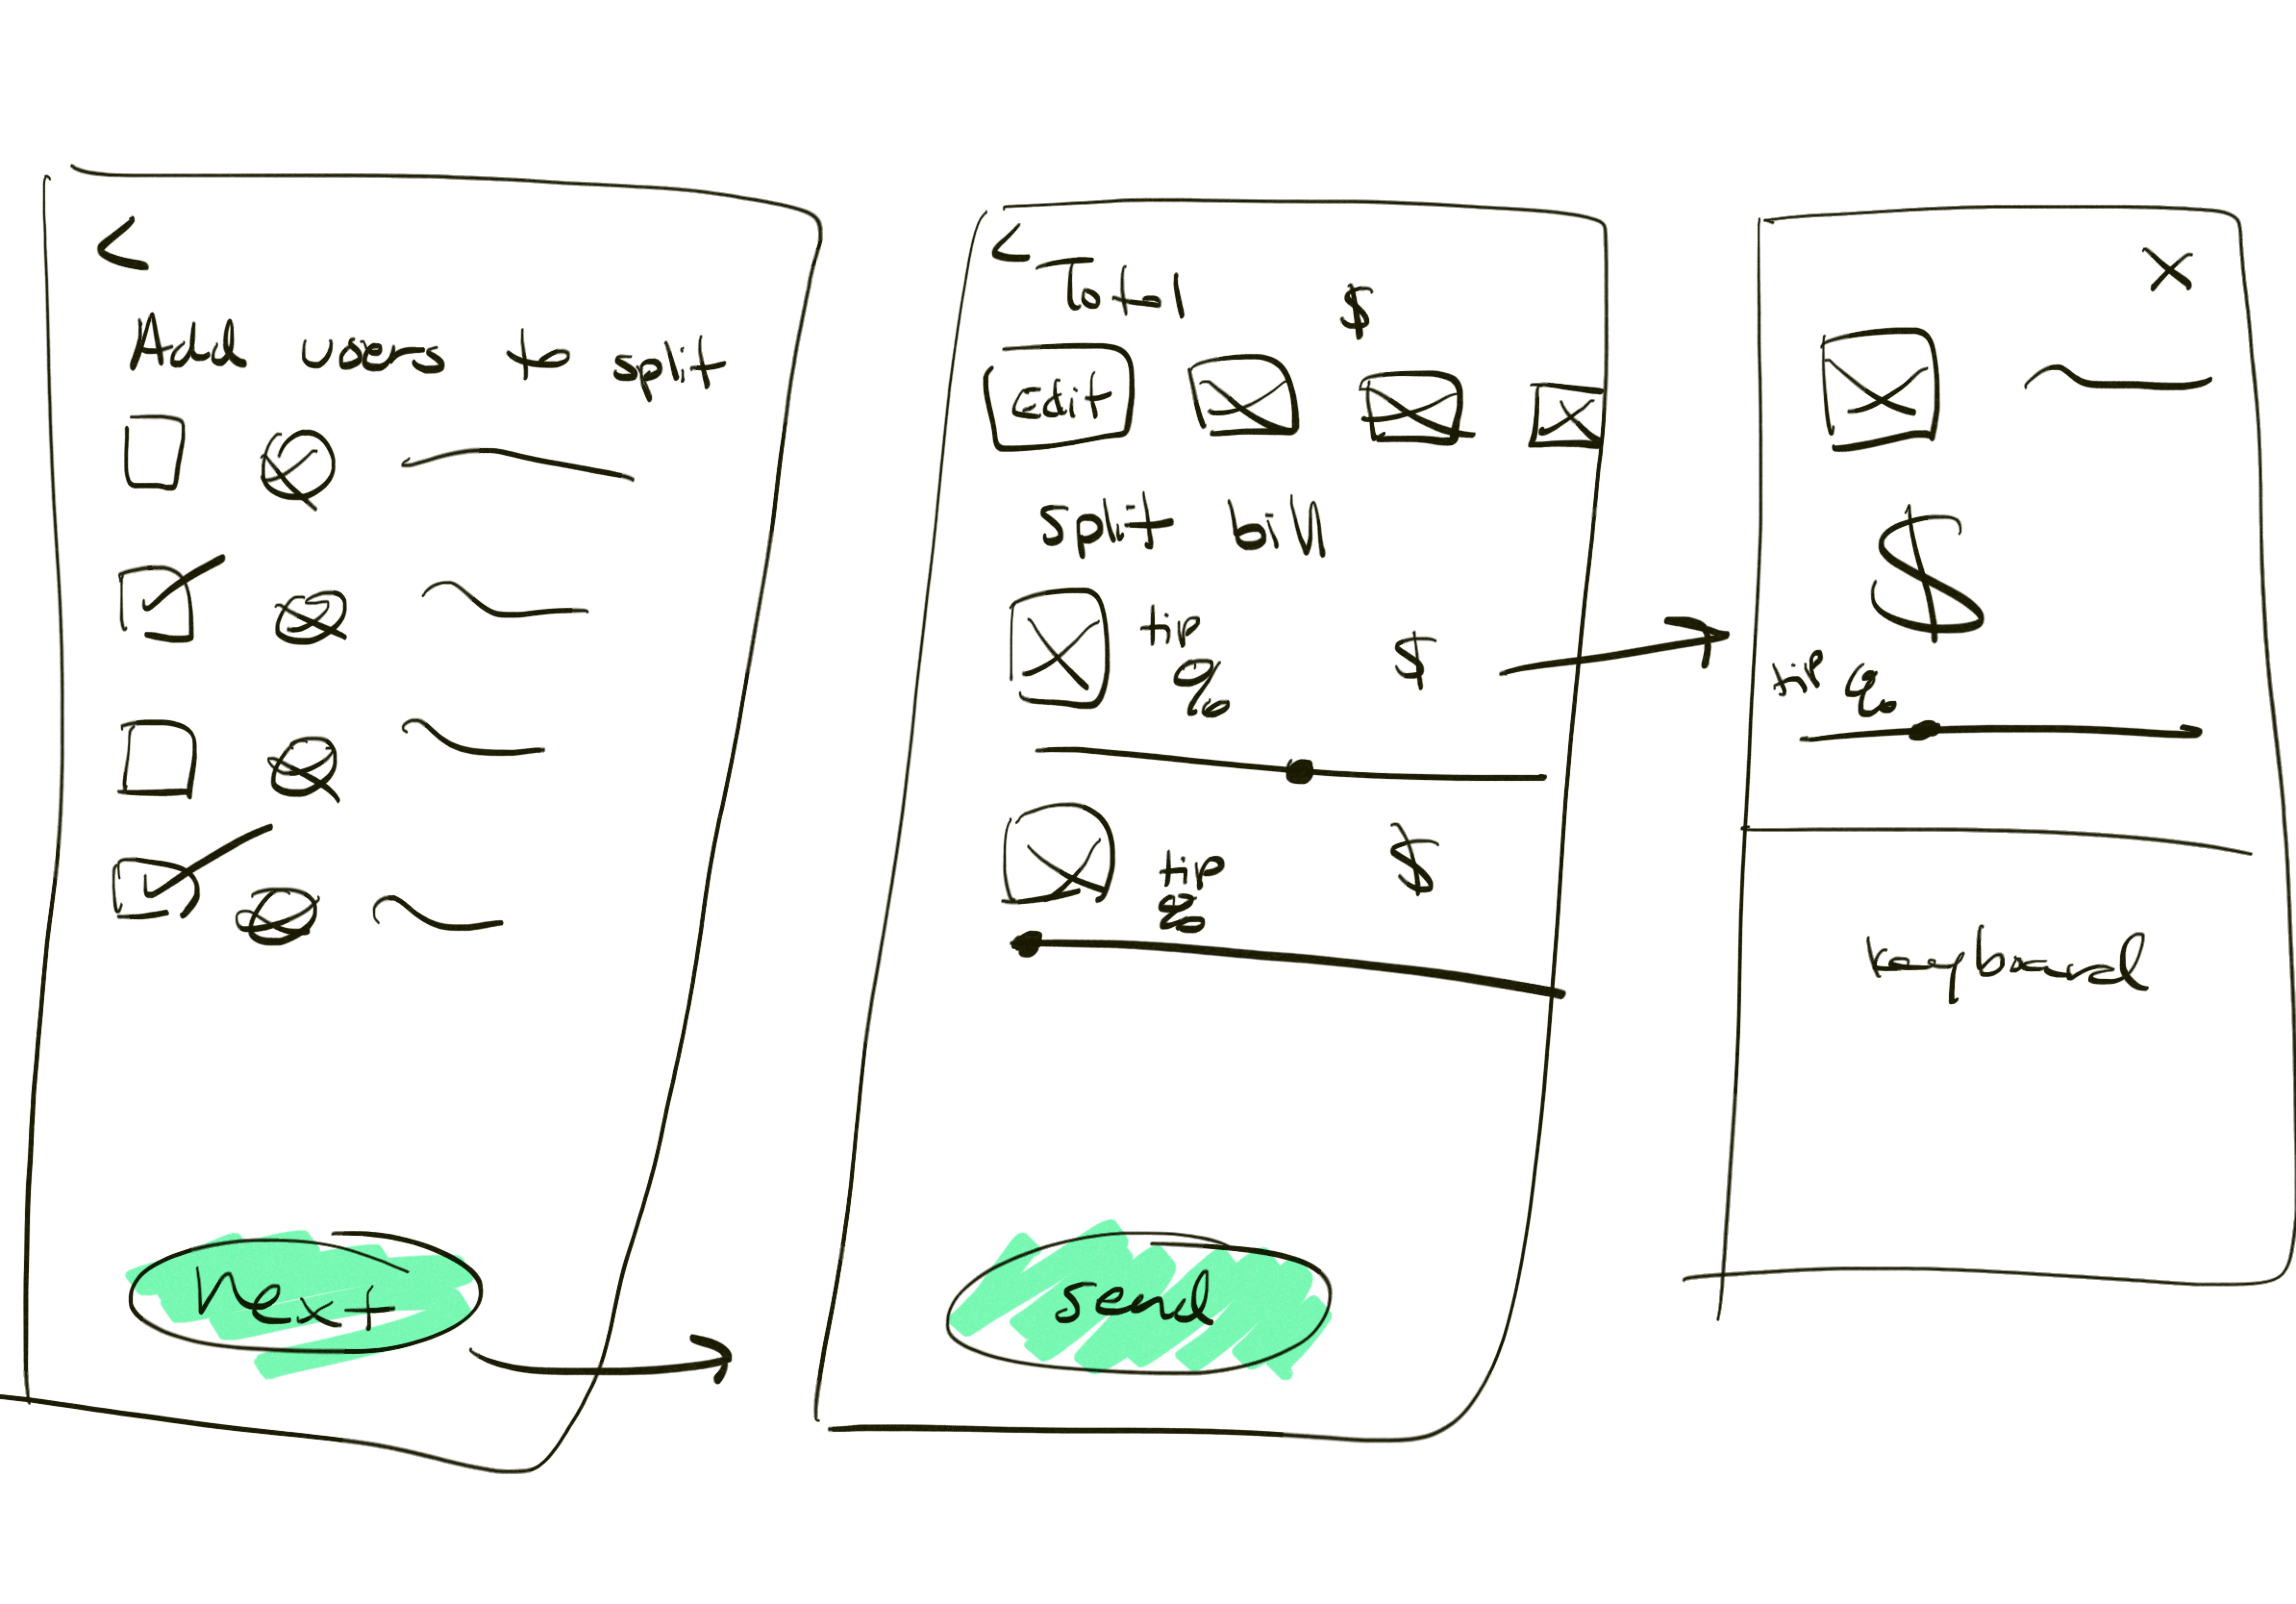 <
Add users to split
Next
<
Total $
Edit
Split bill
tip $
%
tip $
%
send
X
$
tip %
keyboard